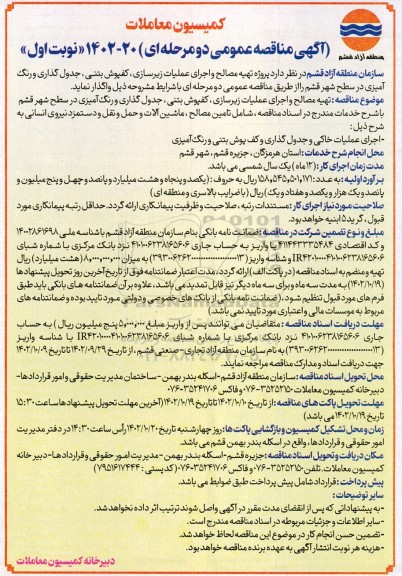 کمیسیون معاملات
(آگهی مناقصه عمومی دو مرحله ای) ۲۰-۱۴۰۲ «نوبت اول»
منطقه آزاد قشم
سازمان منطقه آزاد قشم در نظر دارد پروژه تهیه مصالح و اجرای عملیات زیرسازی، کفپوش بتنی، جدول گذاری و رنگ
آمیزی در سطح شهر قشم را از طریق مناقصه عمومی دو مرحله ای با شرایط مشروحه ذیل واگذار نماید.
موضوع مناقصه: تهیه مصالح و اجرای عملیات زیرسازی، کفپوش بتنی، جدول گذاری و رنگ آمیزی در سطح شهر قشم
با شرح خدمات مندرج در اسناد مناقصه، شامل تامین مصالح، ماشین آلات و حمل و نقل و دستمزد نیروی انسانی به
شرح ذیل:
-اجرای عملیات خاکی و جدول گذاری و کف پوش بتنی و رنگ آمیزی
محل انجام شرح خدمات: استان هرمزگان، جزیره قشم، شهر قشم
مدت زمان اجرای کار: (۱۲ ماه) یک سال شمسی می باشد.
برآورد اولیه: به عدد: ۱۵۸,۵۴۵,۵۰۱,۱۷۱ ریال به حروف: (یکصد و پنجاه و هشت میلیارد و پانصد و چهل و پنج میلیون و
پانصد و یک هزار و یکصد و هفتاد و یک) ریال (با ضرایب بالاسری و منطقه ای)
صلاحیت مورد نیاز اجرای کار: مستندات رتبه، صلاحیت و ظرفیت پیمانکاری ارائه گردد. حداقل رتبه پیمانکاری مورد
قبول، گرید ۵ ابنیه خواهد بود.
مبلغ و نوع تضمین شرکت در مناقصه: ضمانت نامه بانکی بنام سازمان منطقه آزاد قشم با شناسه ملی
و کد اقتصادی ۴۱۱۴۴۳۳۳۵۴۸۴ یا واریز به حساب جاری نزد بانک مرکزی با شماره شبای
و شناسه واریز به میزان ۸,۰۰۰,۰۰۰,۰۰۰ (هشت میلیارد) ریال
تهیه و منضم به اسناد مناقصه (در پاکت الف) ارائه گردد، مدت اعتبار ضمانتنامه فوق از تاریخ آخرین روز تحویل پیشنهادها
(۱۴۰۲/۱۰/۱۹) به مدت سه ماه و برای سه ماه دیگر نیز قابل تمدید می باشد، علاوه بر آن ضمانتنامه های بانکی باید طبق
فرم های مورد قبول تنظیم شود، (ضمانت نامه بانکی از بانک های خصوصی و دولتی مورد تایید بوده و ضمانتنامه های
مربوط به موسسات مالی و اعتباری مورد تایید نمی باشد)
مهلت دریافت اسناد مناقصه: متقاضیان می توانند پس از واریز مبلغ ۵,۰۰۰,۰۰۰ پنج میلیون ریال) به حساب
جاری نزد بانک مرکزی با شماره شبای با شناسه واریز
به نام سازمان منطقه آزاد تجاری - صنعتی قشم، از تاریخ ۱۴۰۲/۰۹/۲۹ تا تاریخ ۱۴۰۲/۱۰/۰۹
جهت دریافت اسناد و مدارک مناقصه مراجعه نمایند.
محل تحویل اسناد مناقصه سازمان منطقه آزاد قشم - اسکله بندر بهمن - ساختمان مدیریت حقوقی و امور قراردادها-
دبیرخانه کمیسیون معاملات ۳۵۲۵۲۱۵۰-۰۷۶ و فاکس ۳۵۲۴۱۷۰۶-۰۷۶
مهلت تحویل پاکت های مناقصه: از تاریخ ۱۴۰۲/۱۰/۱۰ تا تاریخ ۱۴۰۲/۱۰/۱۹ (آخرین مهلت تحویل پیشنهادها ساعت ۱۵:۳۰
تاریخ ۱۴۰۲/۱۰/۱۹ می باشد)
زمان و محل تشکیل کمیسیون و بازگشایی پاکت ها: روز چهارشنبه تاریخ ۱۴۰۲/۱۰/۲۰ رأس ساعت ۱۴:۳۰ در دفتر مدیریت
امور حقوقی و قراردادها، واقع در اسکله بندر بهمن قشم می باشد.
مکان دریافت و تحویل اسناد مناقصه: جزیره قشم - اسکله بندر بهمن - مدیریت امور حقوقی و قراردادها - دبیر خانه
کمیسیون معاملات. تلفن ۳۵۲۵۲۱۵۰-۰۷۶ و فاکس ۳۵۲۴۱۷۰۶-۰۷۶ (کدپستی: ۷۹۵۱۶۱۷۴۴۴)
پیش پرداخت: قرارداد شامل پیش پرداخت طبق ضوابط می باشد.
سایر توضیحات:
-به پیشنهاداتی که پس از انقضای مدت مقرر در آگهی واصل شوند ترتیب اثر داده نخواهد شد.
-سایر اطلاعات و جزئیات مربوطه در اسناد مناقصه مندرج است.
-تضمین حسن انجام کار در موضوع این مناقصه لحاظ خواهد شد.
-هزینه هر نوبت انتشار آگهی به عهده برنده مناقصه خواهد بود.
دبیرخانه کمیسیون معاملات